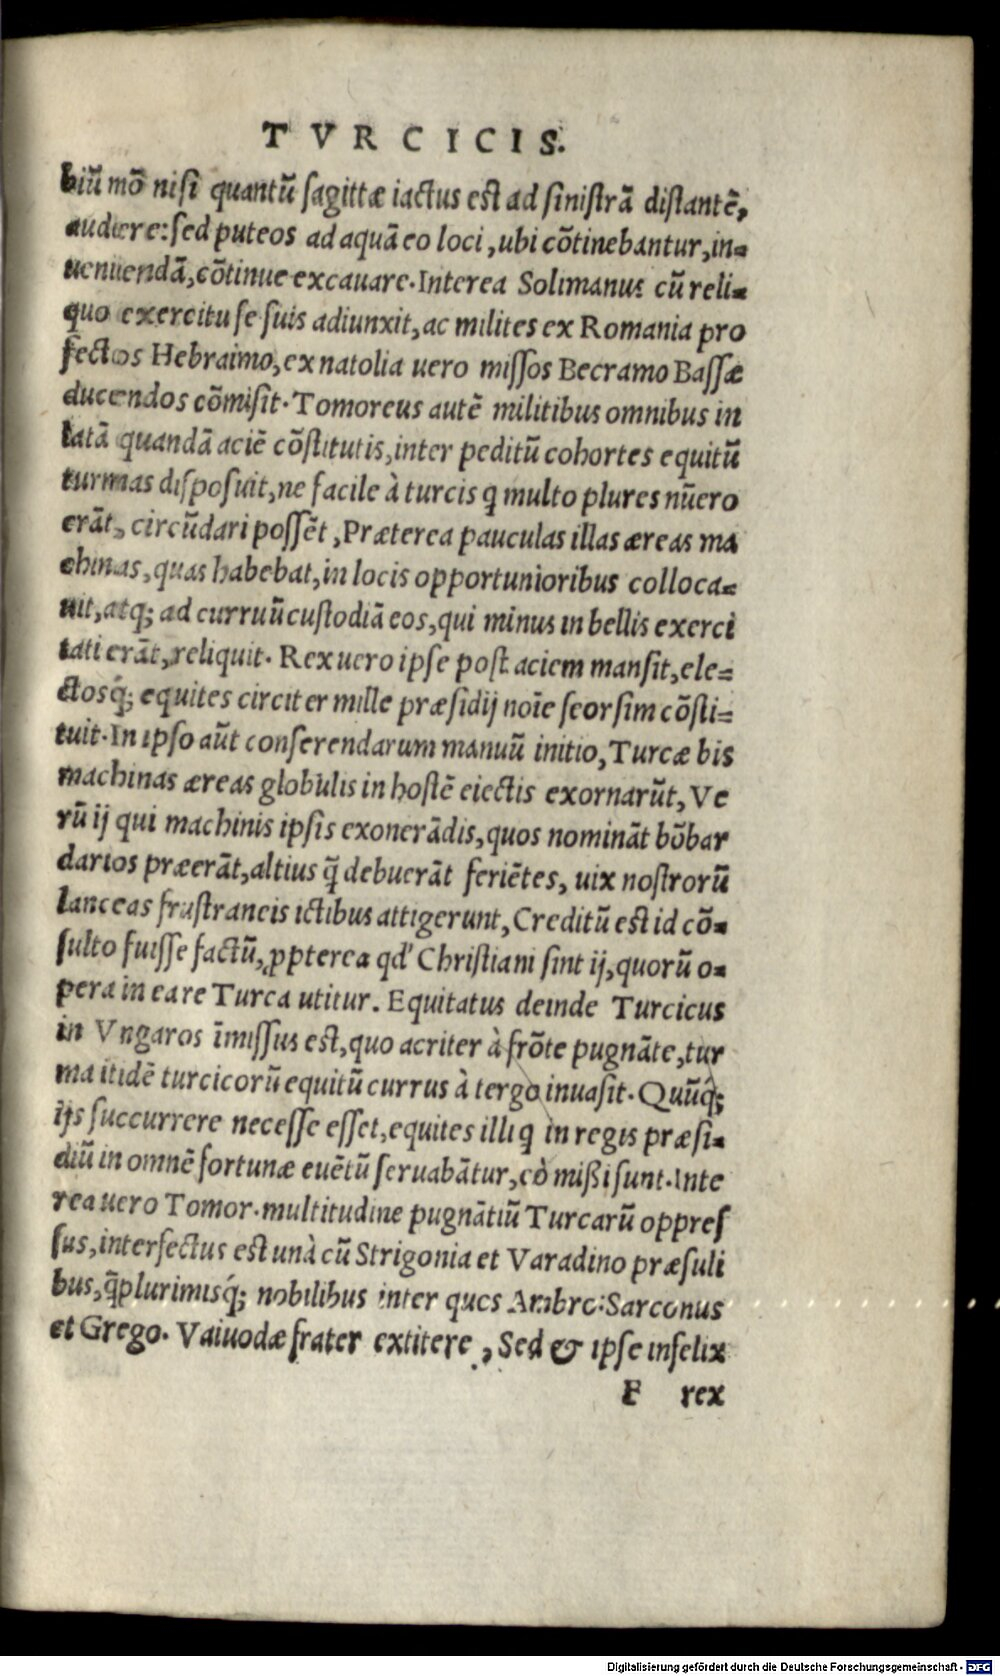 TVRCICIS.
biū mō nisi quantū sagittæ iactus est ad sinistrā distantē,
audiere: sed puteos ad aquā eo loci, ubi cōtinebantur, in-
ueniendā, cōtinue excauare. Interea Solimanus cū reli-
quo exercitu se suis adiunxit, ac milites ex Romania pro
fectos Hebraimo, ex natolia uero missos Becramo Bassæ
ducendos cōmisit. Tomoreus autē militibus omnibus in
latā quandā aciē cōstitutis, inter peditū cohortes equitū
turmas disposuit, ne facile à turcis q̨ multo plures nūero
erāt, circūdari possēt, Præterea pauculas illas æreas ma
chinas, quas habebat, in locis opportunioribus colloca-
uit, atq; ad curruū custodiā eos, qui minus in bellis exerci
tati erāt, reliquit. Rex uero ipse post aciem mansit, ele-
ctosq́; equites circiter mille præsidij noīe seorsim cōsti-
tuit. In ipso aūt conserendarum manuū initio, Turcæ bis
machinas æreas globulis in hostē eiectis exornarūt, Ve
rū ij qui machinis ipsis exonerādis, quos nomināt bōbar
darios præerāt, altius q̄ debuerāt feriētes, uix nostrorū
lanceas frustraneis ictibus attigerunt, Creditū est id cō-
sulto fuisse factū, ꝓpterea qd' Christiani sint ij, quorū o-
pera in ea re Turca utitur. Equitatus deinde Turcicus
in Vngaros īmissus est, quo acriter à frōte pugnāte, tur
ma itidē turcicorū equitū currus à tergo inuasit. Quūq́;
ijs succurrere necesse esset, equites illi q̨ in regis præsi-
diū in omnē fortunæ euētū seruabātur, eò mißi sunt. Inte
rea uero Tomor. multitudine pugnātiū Turcarū oppres
sus, interfectus est unà cū Strigonia et Varadino præsuli
bus, q̄plurimisq́; nobilibus inter ques Ambro: Sarconus
et Grego. Vaiuodæ frater extitere, Sed & ipse infelix
F rex
Digitalisierung gefördert durch die Deutsche Forschungsgemeinschaft - DFG